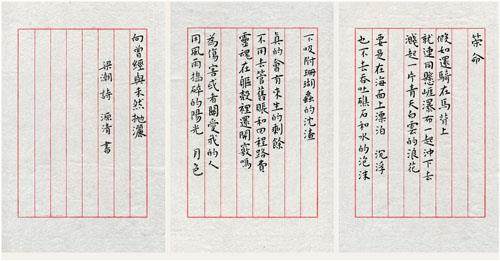 榮命
假如還騎在馬背上
就連同懸崖瀑布一起沖下去
濺起一片青天白雲的浪花
要是在海面上漂泊 沉浮
也不去吞吐礁石和水的泡沫
不吸附珊瑚蟲的沈渣
真的會有來生的剩餘
不用去管舊賬和四裡路費
靈魂在軀殼裡還開竅嗎
為傷害或者關愛我的人
用風雨擣碎的陽光 月色
向曾經與未然拋灑
梁潮 詩 源清 書